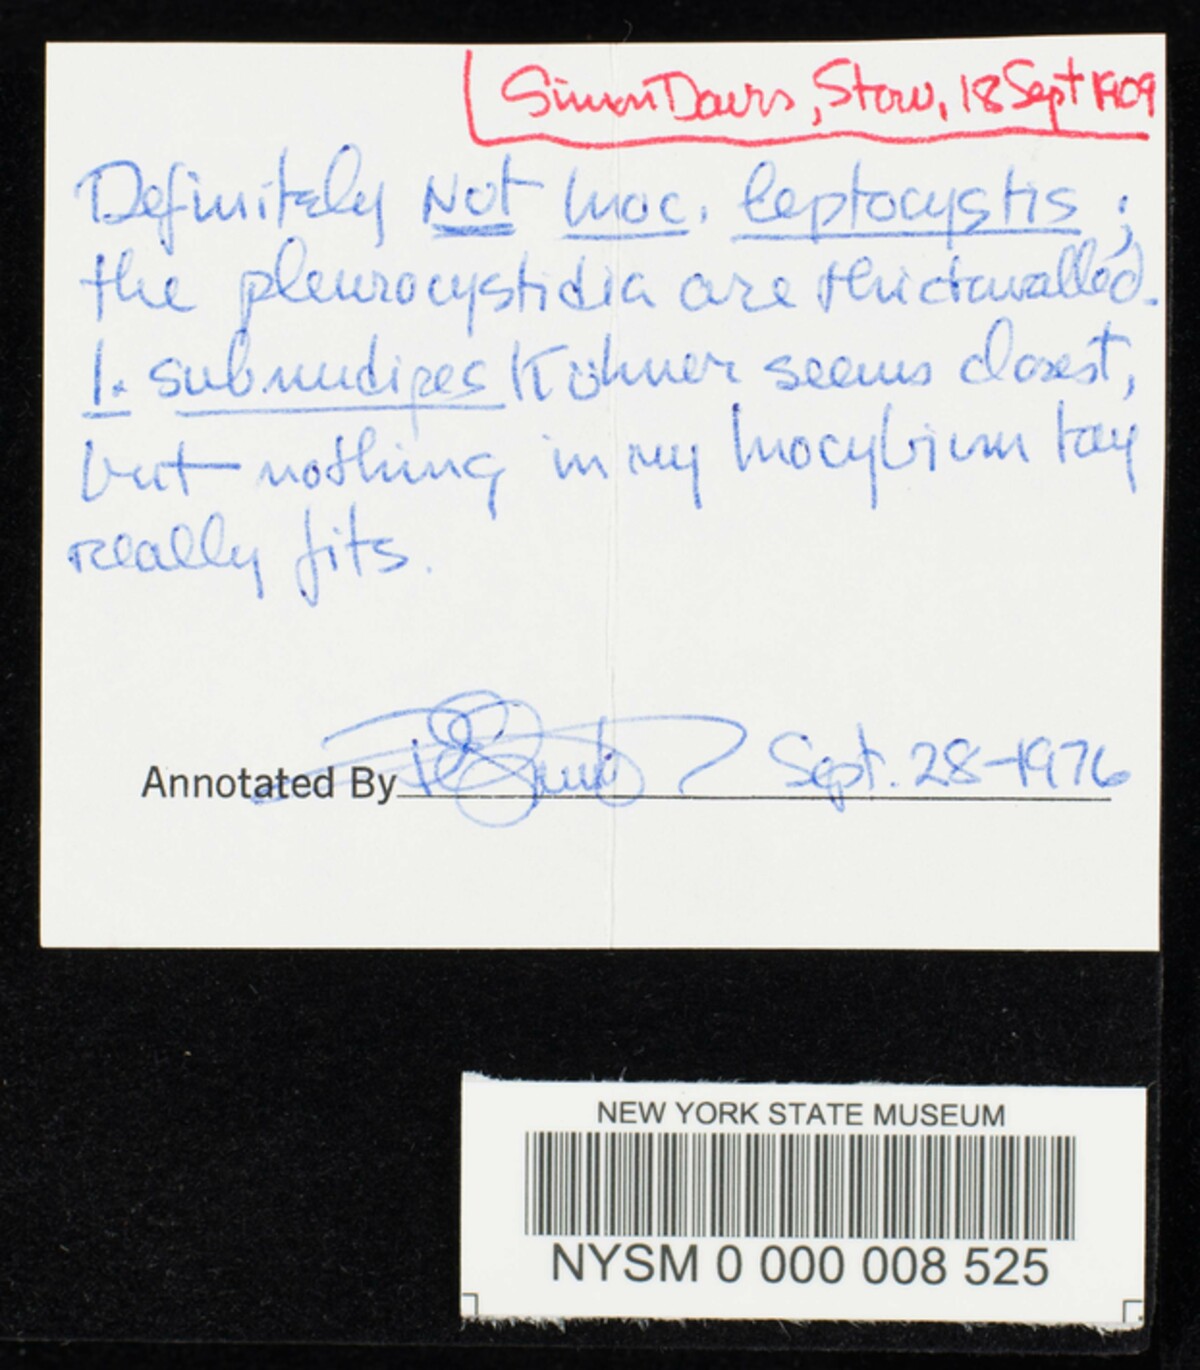 Simon Davis, Stow, 18 Sept 1909
Definitely Not Inoc. leptocystis;
the pleurocystidia are thickwalled.
I. submudipes Kühner seems closest,
but nothing in my Inocybium key
really fits.
Annotated By Sept. 28-1976
NEW YORK STATE MUSEUM
NYSM 0 000 008 525